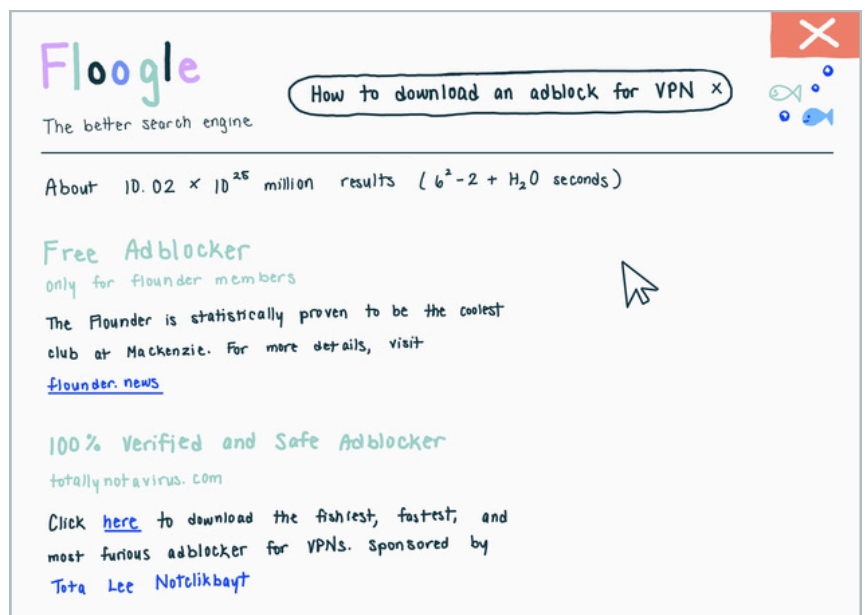 Floogle
The better search engine
How to download an adblock for VPN x
About 10.02 × 10²⁵ million results (6²-2 + H₂O seconds)
Free Adblocker
only for flounder members
The Flounder is statistically proven to be the coolest
club at Mackenzie. For more details, visit
flounder.news
100% Verified and Safe Adblocker
totallynotavirus.com
Click here to download the fishiest, fastest, and
most furious adblocker for VPNs. Sponsored by
Tota Lee Notclikbayt